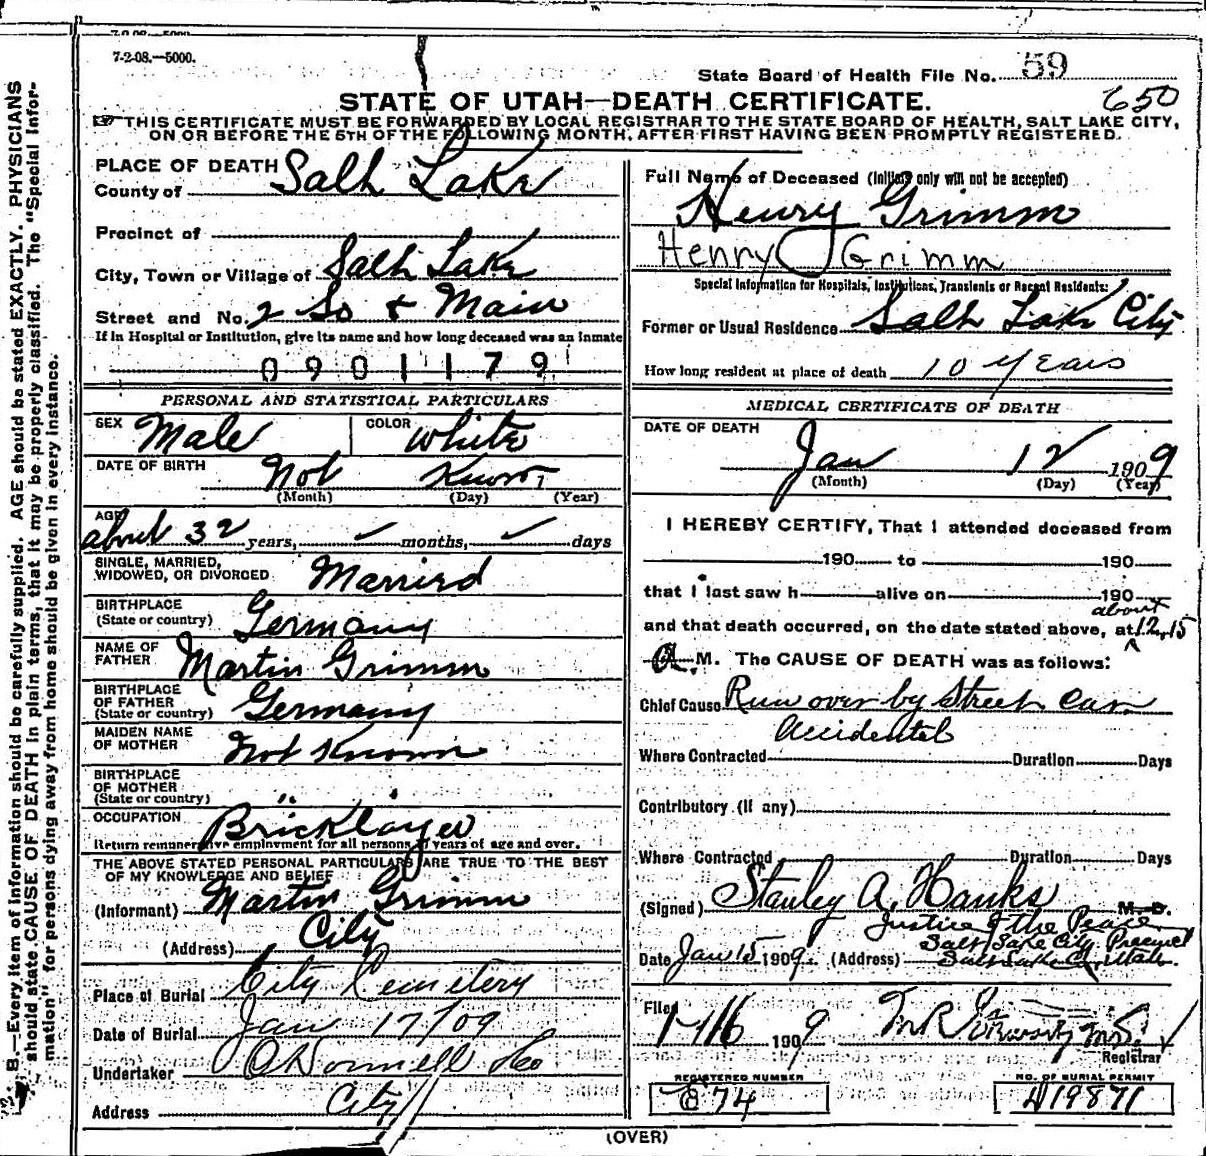 7-2-08.—5000.
State Board of Health File No. 59
650
STATE OF UTAH—DEATH CERTIFICATE.
THIS CERTIFICATE MUST BE FORWARDED BY LOCAL REGISTRAR TO THE STATE BOARD OF HEALTH, SALT LAKE CITY,
ON OR BEFORE THE 5TH OF THE FOLLOWING MONTH, AFTER FIRST HAVING BEEN PROMPTLY REGISTERED.
B.—Every item of information should be carefully supplied. AGE should be stated EXACTLY. PHYSICIANS
should state CAUSE OF DEATH in plain terms, that it may be properly classified. The "Special Infor-
mation" for persons dying away from home should be given in every instance.
PLACE OF DEATH
County of Salt Lake
Precinct of
City, Town or Village of Salt Lake
Street and No. 2 So & Main
If in Hospital or Institution, give its name and how long deceased was an inmate
0901179
PERSONAL AND STATISTICAL PARTICULARS
SEX Male COLOR White
DATE OF BIRTH Not Known
(Month) (Day) (Year)
AGE about 32 years, months, days
SINGLE, MARRIED,
WIDOWED, OR DIVORCED Married
BIRTHPLACE
(State or country) Germany
NAME OF
FATHER Martin Grimm
BIRTHPLACE
OF FATHER
(State or country) Germany
MAIDEN NAME
OF MOTHER Not Known
BIRTHPLACE
OF MOTHER
(State or country) " "
OCCUPATION Bricklayer
Return remunerative employment for all persons years of age and over.
THE ABOVE STATED PERSONAL PARTICULARS ARE TRUE TO THE BEST
OF MY KNOWLEDGE AND BELIEF
(Informant) Martin Grimm
(Address) City
Place of Burial City Cemetery
Date of Burial Jan 17/09
Undertaker O'Donnell & Co
Address City
Full Name of Deceased (Initials only will not be accepted)
Henry Grimm
Henry Grimm
Special Information for Hospitals, Institutions, Transients or Recent Residents:
Former or Usual Residence Salt Lake City
How long resident at place of death 10 years
MEDICAL CERTIFICATE OF DEATH
DATE OF DEATH
Jan 12 1909
(Month) (Day) (Year)
I HEREBY CERTIFY, That I attended deceased from
190 to 190
that I last saw h alive on 190
about
and that death occurred, on the date stated above, at 12.15
A M. The CAUSE OF DEATH was as follows:
Chief Cause Run over by Street Car
Accidental
Where Contracted Duration Days
Contributory (If any)
Where Contracted Duration Days
(Signed) Stanley A. Hanks M. D.
Justice of the Peace
Salt Lake City Precinct
Date Jan 15 1909. (Address) Salt Lake C. Utah.
Filed 1-16 1909
Registrar
REGISTERED NUMBER
E 74
NO. OF BURIAL PERMIT
A19871
(OVER)